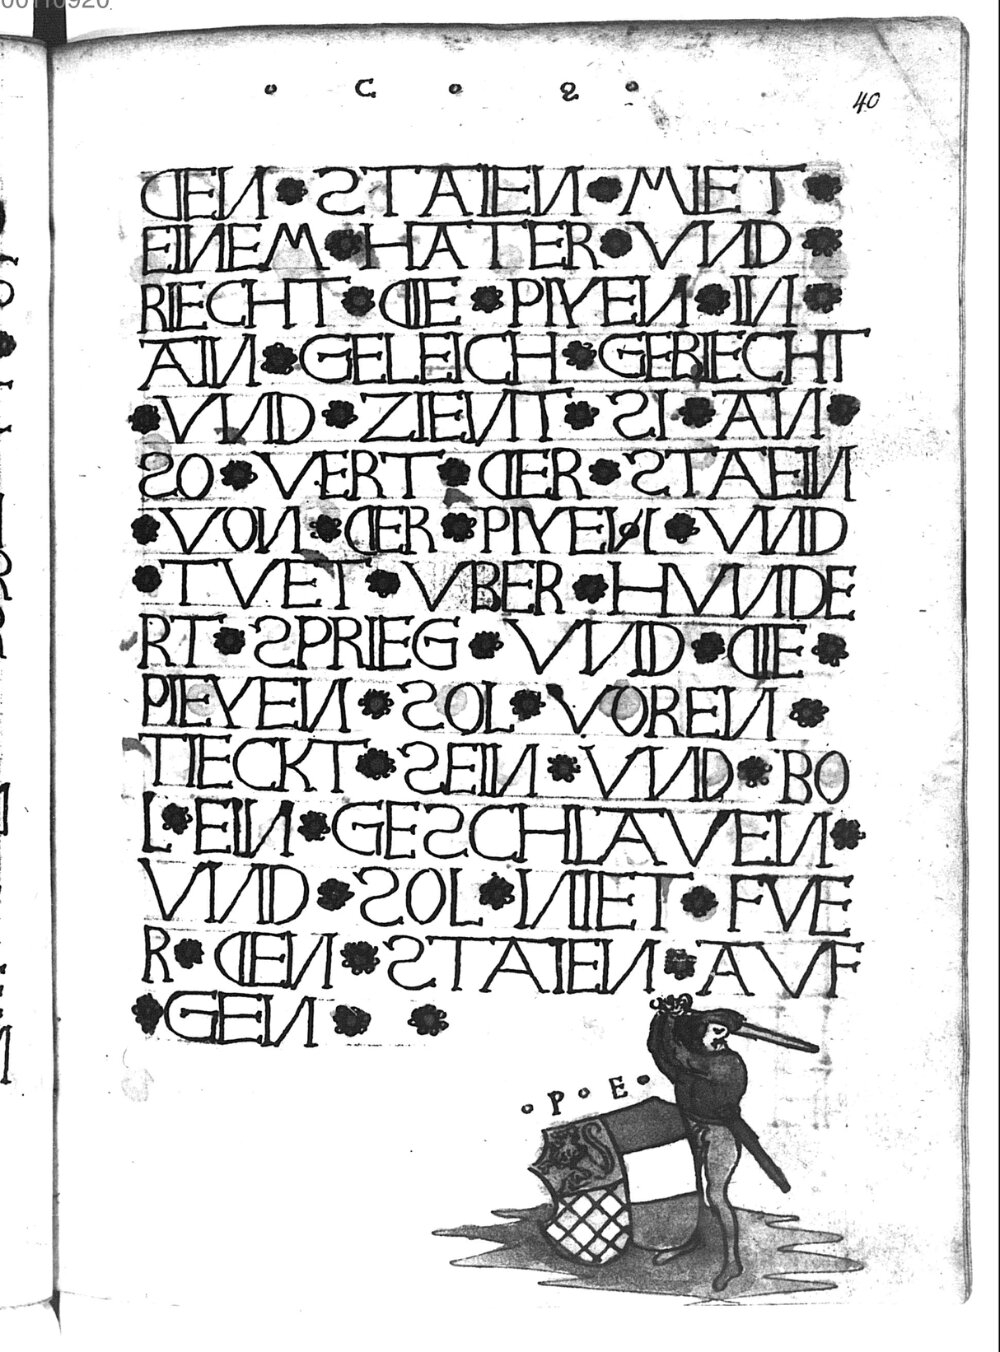 00110920
• C • 2 •
40
DEN • STAIEN • MIET •
EINEM • HATER • VND •
RIECHT • DIE • PIXEN • IN •
AIN • GELEICH • GERIECHT
• VND • ZIENT • SI • AN •
SO • VERT • DER • STAEIN
• VON • DER • PIXEN • VND
• TVET • VBER • HVNDE
RT • SPRIEG • VND • DIE •
PIEXEN • SOL • VOREN •
TIECKT • SEIN • VND • BO
L • EIN • GESCHLAVEN •
VND • SOL • NIET • FVE
R • DEN • STAIEN • AVF
• GEN • •
• P • E •